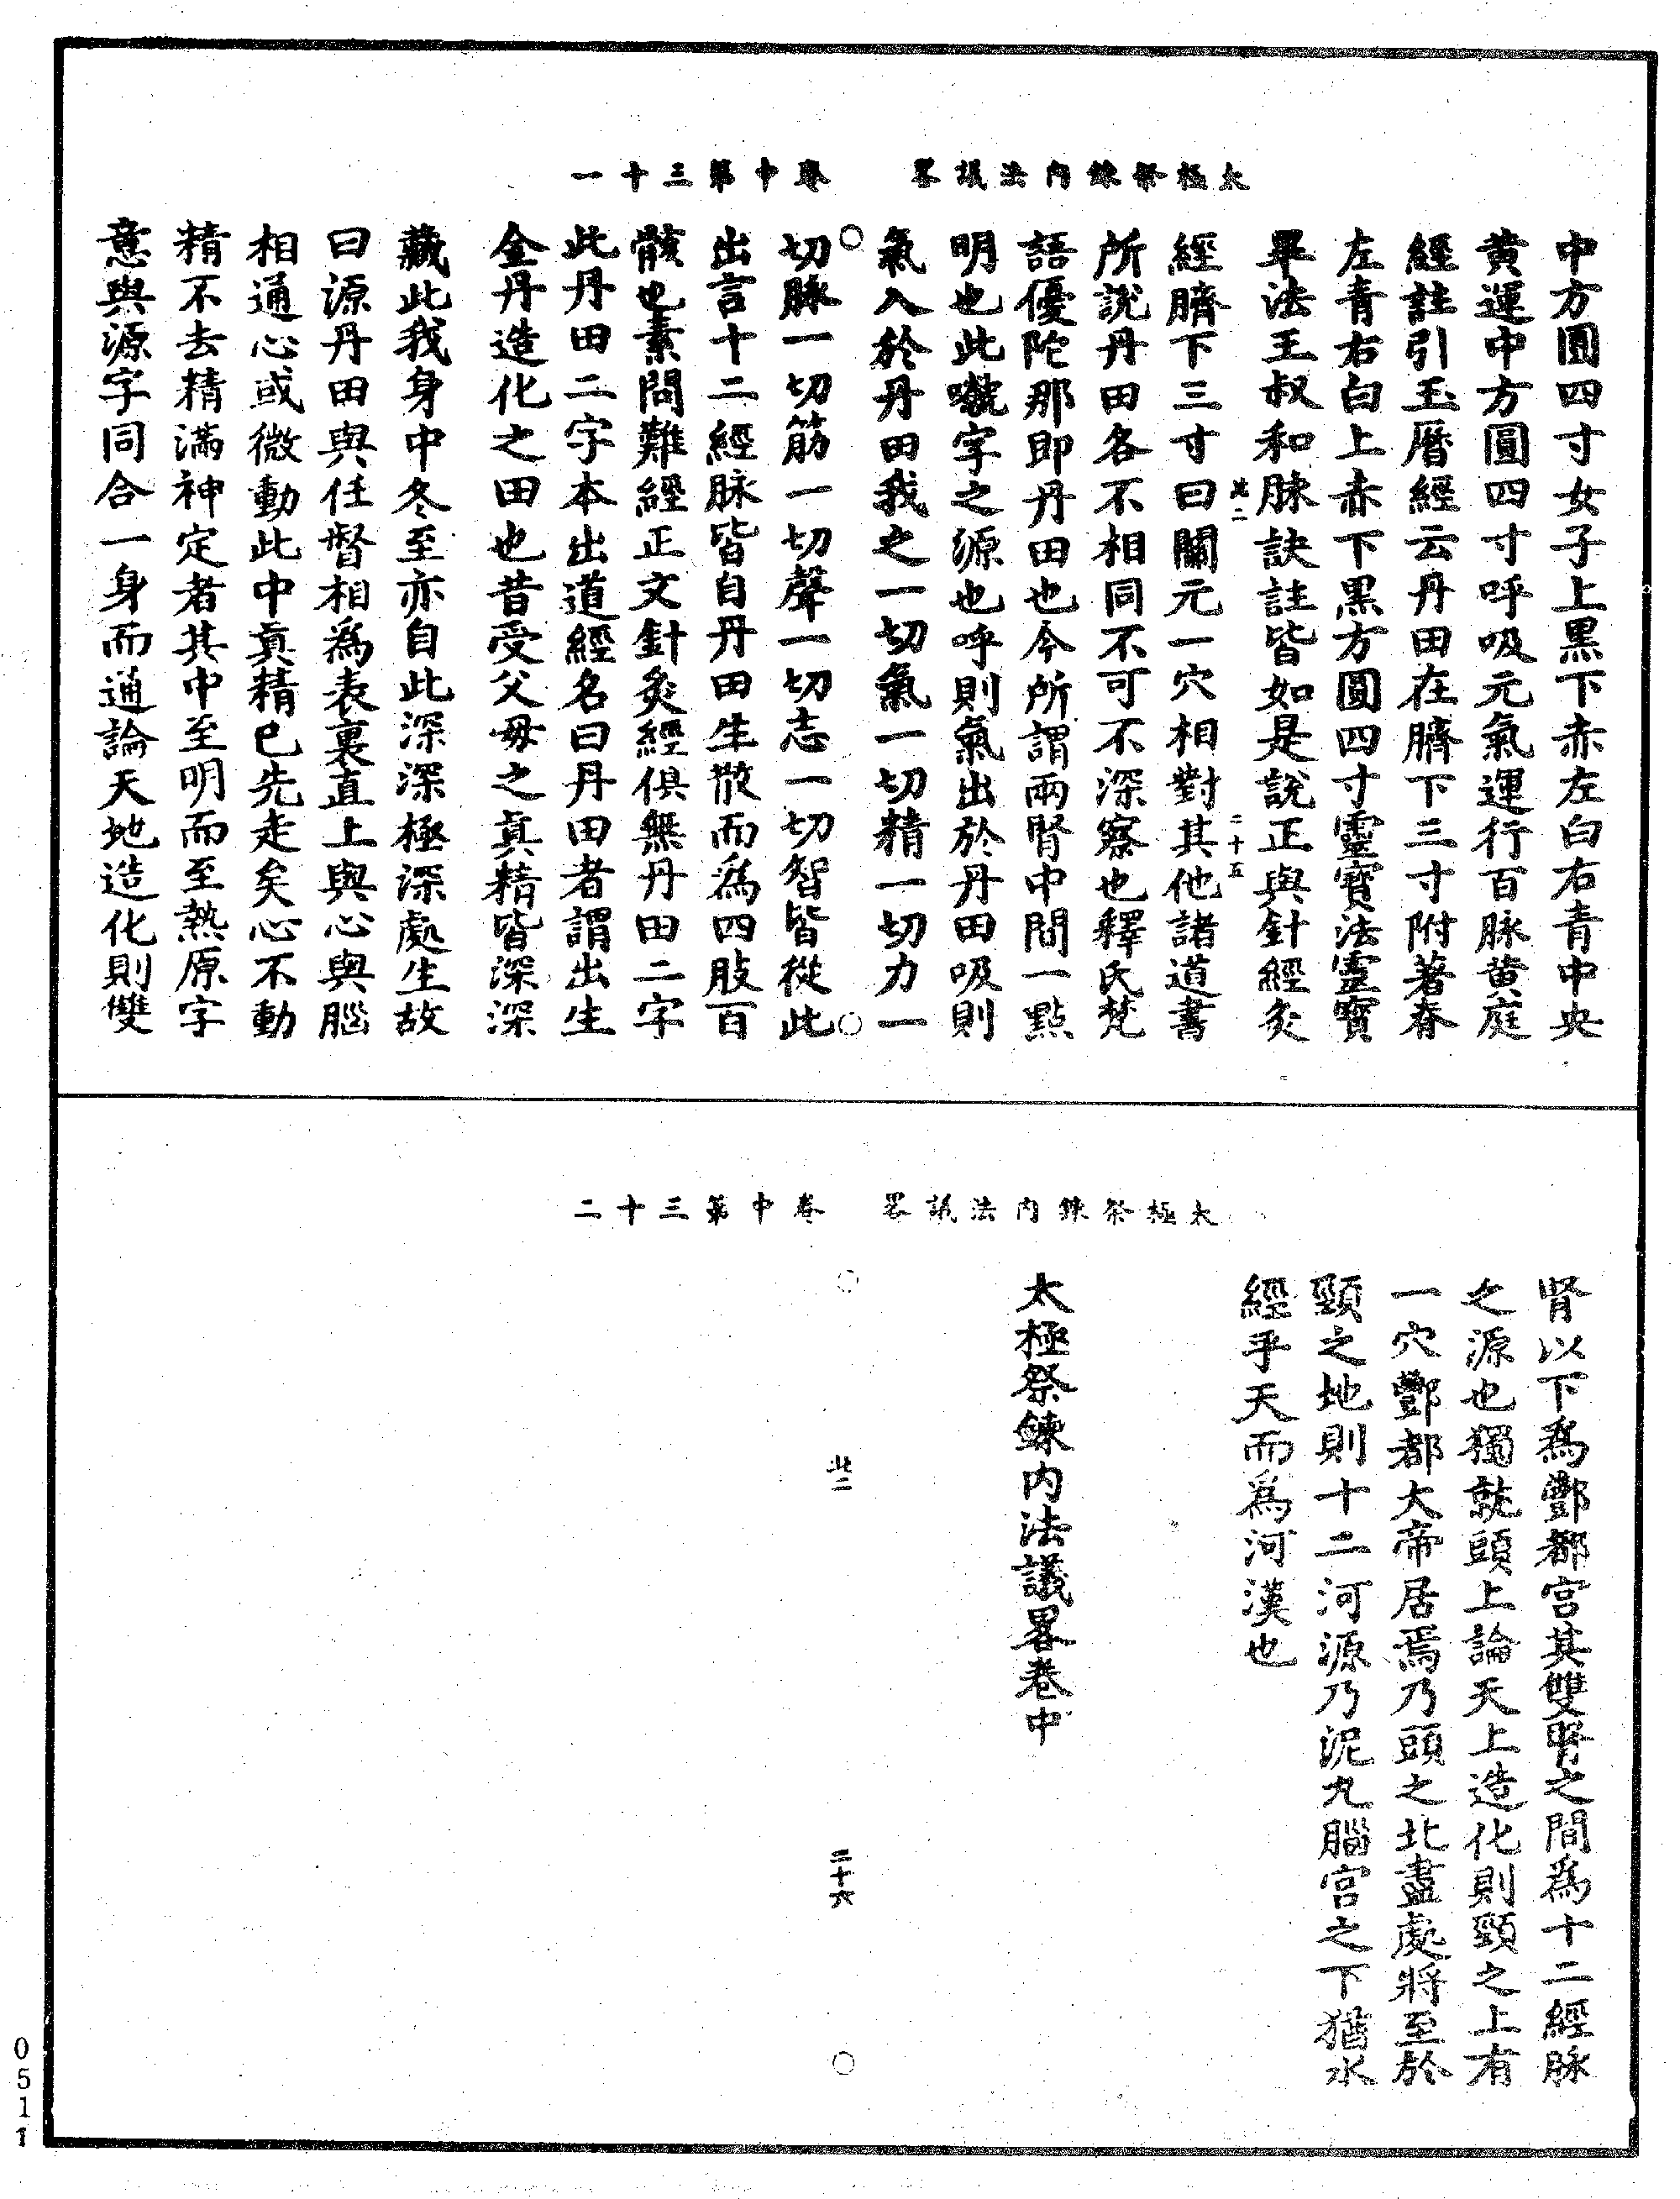 太極祭鍊內法議畧　卷中第三十一
中方圓四寸女子上黒下赤左白右青中央
黄運中方圓四寸呼吸元氣運行百脉黄庭
經註引玉曆經云丹田在臍下三寸附著脊
左青右白上赤下黒方圓四寸靈寶法靈寶
畢法王叔和脉訣註皆如是說正與針經灸
經臍下三寸曰關元一穴相對其他諸道書
所說丹田各不相同不可不深察也釋氏梵
語優陀那即丹田也今所謂兩腎中間一點
明也此嚨字之源也呼則氣出於丹田吸則
氣入於丹田我之一切氣一切精一切力一
切脉一切筋一切聲一切志一切智皆從此
出言十二經脉皆自丹田生散而爲四肢百
骸也素問難經正文針灸經俱無丹田二字
此丹田二字本出道經名曰丹田者謂出生
金丹造化之田也昔受父母之真精皆深深
藏此我身中冬至亦自此深深極深處生故
曰源丹田與任督相爲表裏直上與心與腦
相通心或微動此中真精已先走矣心不動
精不去精滿神定者其中至明而至熱原字
意與源字同合一身而通論天地造化則雙
二十五
太極祭鍊內法議畧　卷中第三十二
腎以下爲酆都宫其雙腎之間爲十二經脉
之源也獨就頭上論天上造化則頸之上有
一穴酆都大帝居焉乃頭之北盡處將至於
頸之地則十二河源乃泥丸腦宫之下猶水
經乎天而爲河漢也
太極祭鍊內法議畧卷中
北二
二十六
0511